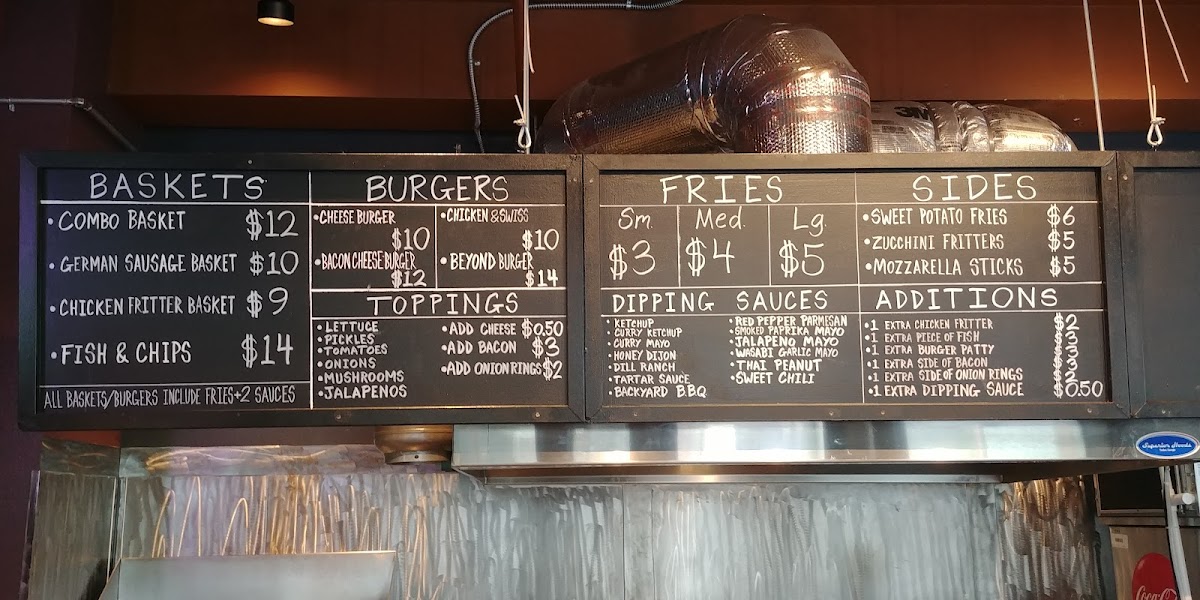 BASKETS
• COMBO BASKET $12
• GERMAN SAUSAGE BASKET $10
• CHICKEN FRITTER BASKET $9
• FISH & CHIPS $14
ALL BASKETS/BURGERS INCLUDE FRIES+2 SAUCES
BURGERS
• CHEESE BURGER
$10
• BACON CHEESE BURGER
$12
• CHICKEN & SWISS
$10
• BEYOND BURGER
$14
TOPPINGS
• LETTUCE
• PICKLES
• TOMATOES
• ONIONS
• MUSHROOMS
• JALAPENOS
• ADD CHEESE $0.50
• ADD BACON $3
• ADD ONION RINGS $2
FRIES
Sm. Med. Lg.
$3 $4 $5
DIPPING SAUCES
• KETCHUP
• CURRY KETCHUP
• CURRY MAYO
• HONEY DIJON
• DILL RANCH
• TARTAR SAUCE
• BACKYARD B.B.Q.
• RED PEPPER PARMESAN
• SMOKED PAPRIKA MAYO
• JALAPENO MAYO
• WASABI GARLIC MAYO
• THAI PEANUT
• SWEET CHILI
SIDES
• SWEET POTATO FRIES $6
• ZUCCHINI FRITTERS $5
• MOZZARELLA STICKS $5
ADDITIONS
• 1 EXTRA CHICKEN FRITTER $2
• 1 EXTRA PIECE OF FISH $3
• 1 EXTRA BURGER PATTY $3
• 1 EXTRA SIDE OF BACON $3
• 1 EXTRA SIDE OF ONION RINGS $2
• 1 EXTRA DIPPING SAUCE $0.50
Superior Hoods
Coca-Cola